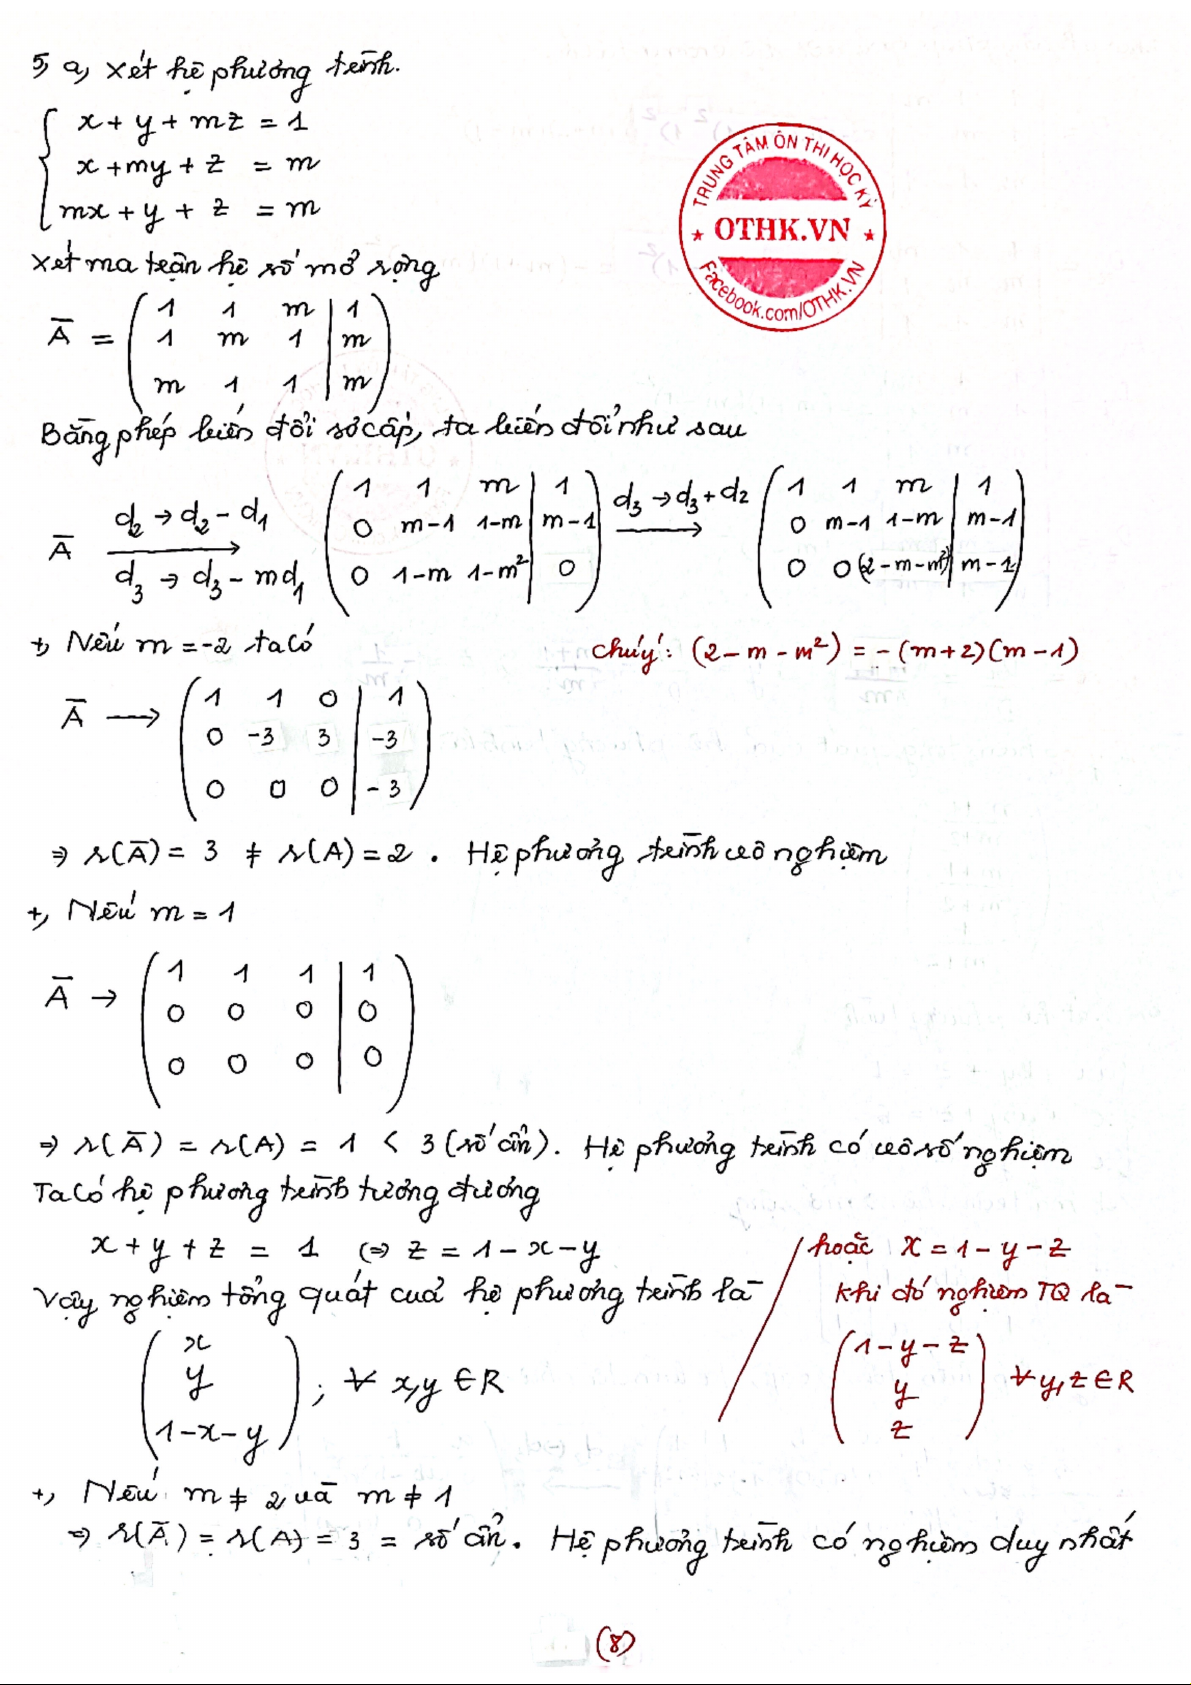 5, a, Xét hệ phương trình.
x + y + mz = 1
x + my + z = m
mx + y + z = m
TRUNG TÂM ÔN THI HỌC KỲ
★ OTHK.VN ★
Facebook.com/OTHK.VN
Xét ma trận hệ số mở rộng
Ā = ( 1 1 m | 1
1 m 1 | m
m 1 1 | m )
Bằng phép biến đổi sơ cấp, ta biến đổi như sau
Ā d2 → d2 - d1
d3 → d3 - md1
( 1 1 m | 1
0 m-1 1-m | m-1
0 1-m 1-m² | 0 )
d3 → d3 + d2
( 1 1 m | 1
0 m-1 1-m | m-1
0 0 (2-m-m²) | m-1 )
+, Nếu m = -2 ta có
Chú ý: (2 - m - m²) = - (m+2)(m-1)
Ā → ( 1 1 0 | 1
0 -3 3 | -3
0 0 0 | -3 )
⇒ r(Ā) = 3 ≠ r(A) = 2. Hệ phương trình vô nghiệm
+, Nếu m = 1
Ā → ( 1 1 1 | 1
0 0 0 | 0
0 0 0 | 0 )
⇒ r(Ā) = r(A) = 1 < 3 (số ẩn). Hệ phương trình có vô số nghiệm
Ta có hệ phương trình tương đương
x + y + z = 1 ⇔ z = 1 - x - y
/ hoặc x = 1 - y - z
Vậy nghiệm tổng quát của hệ phương trình là
khi đó nghiệm TQ là
( x
y
1-x-y ) ; ∀ x,y ∈ R
( 1-y-z
y
z ) ∀ y,z ∈ R
+, Nếu m ≠ 2 và m ≠ 1
⇒ r(Ā) = r(A) = 3 = số ẩn. Hệ phương trình có nghiệm duy nhất
(8)